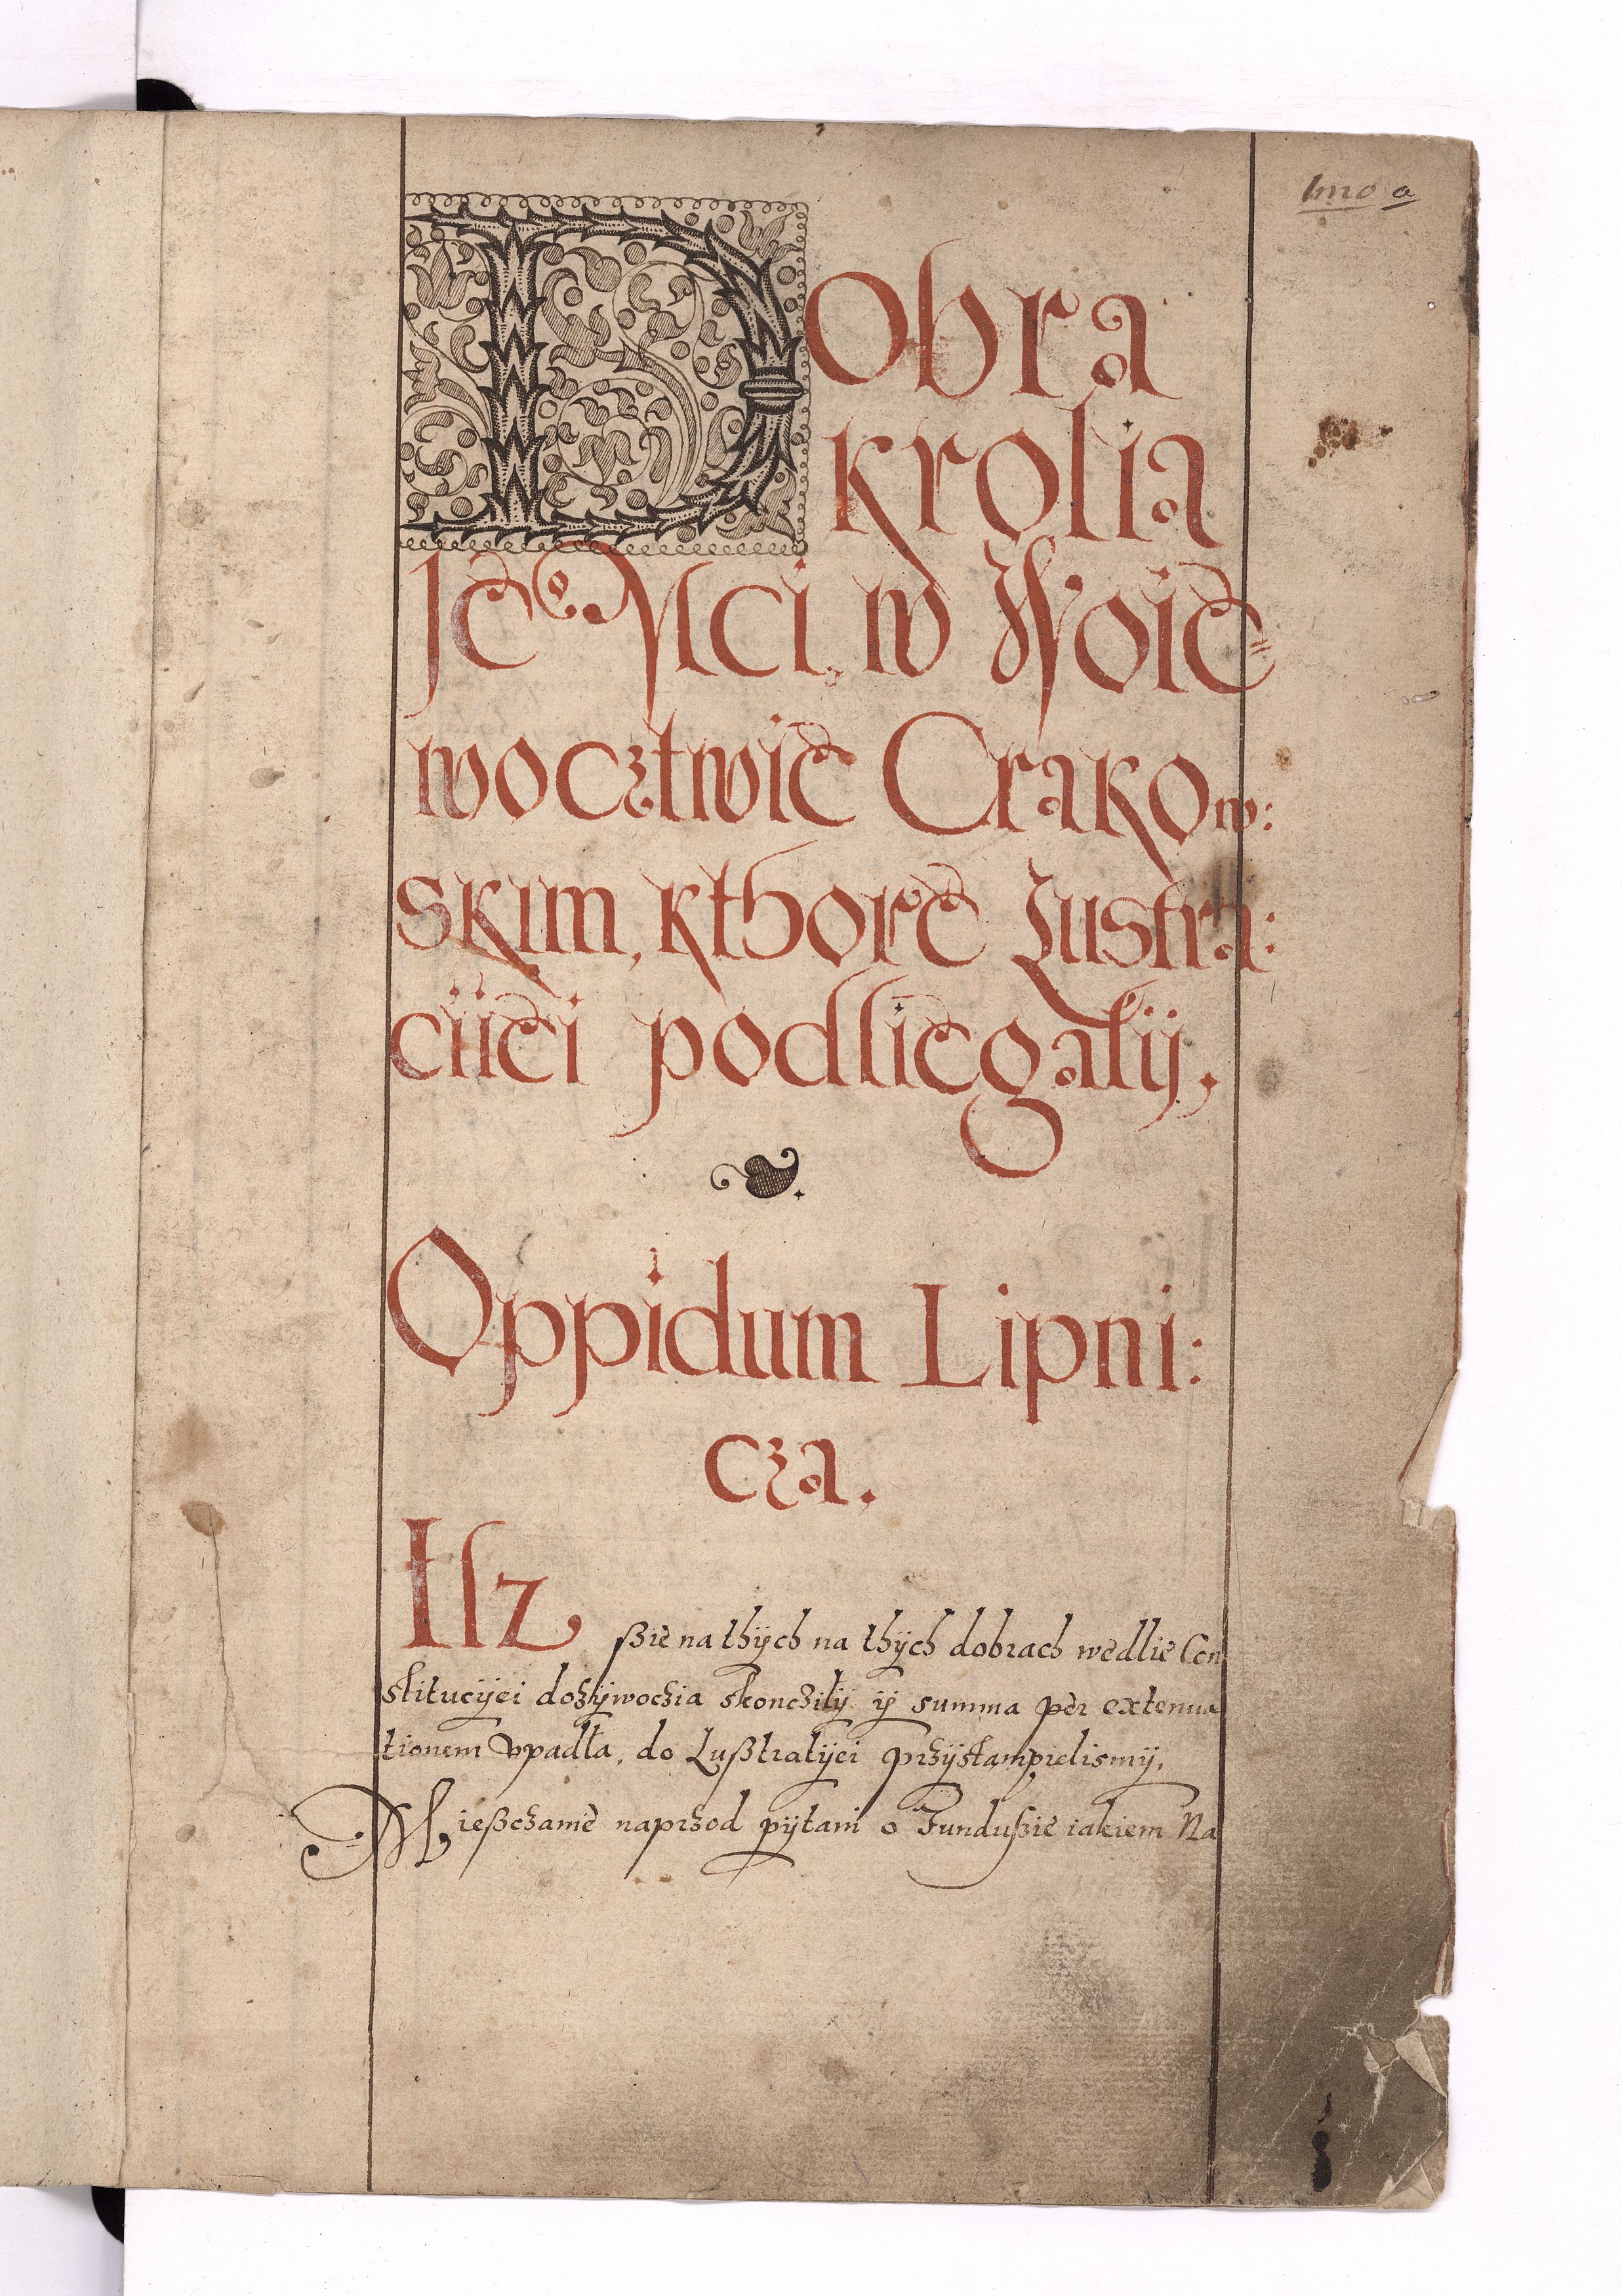 Imo a
Dobra
krolia
Je° Mci, w Woie=
wocztwie Crakow:
skim, kthore Lustra:
ciiei podliegalÿ,
Oppidum Lipni:
cza.
Isz ßie na thÿch na thÿch dobrach wedlie Con
stitucÿei dożÿwoczia skonczilÿ ÿ summa per extenua
tionem vpadła, do Lußtratÿei przÿstampielismÿ,
Mießczanie naprzod pÿtani o Fundußie iakiem Na